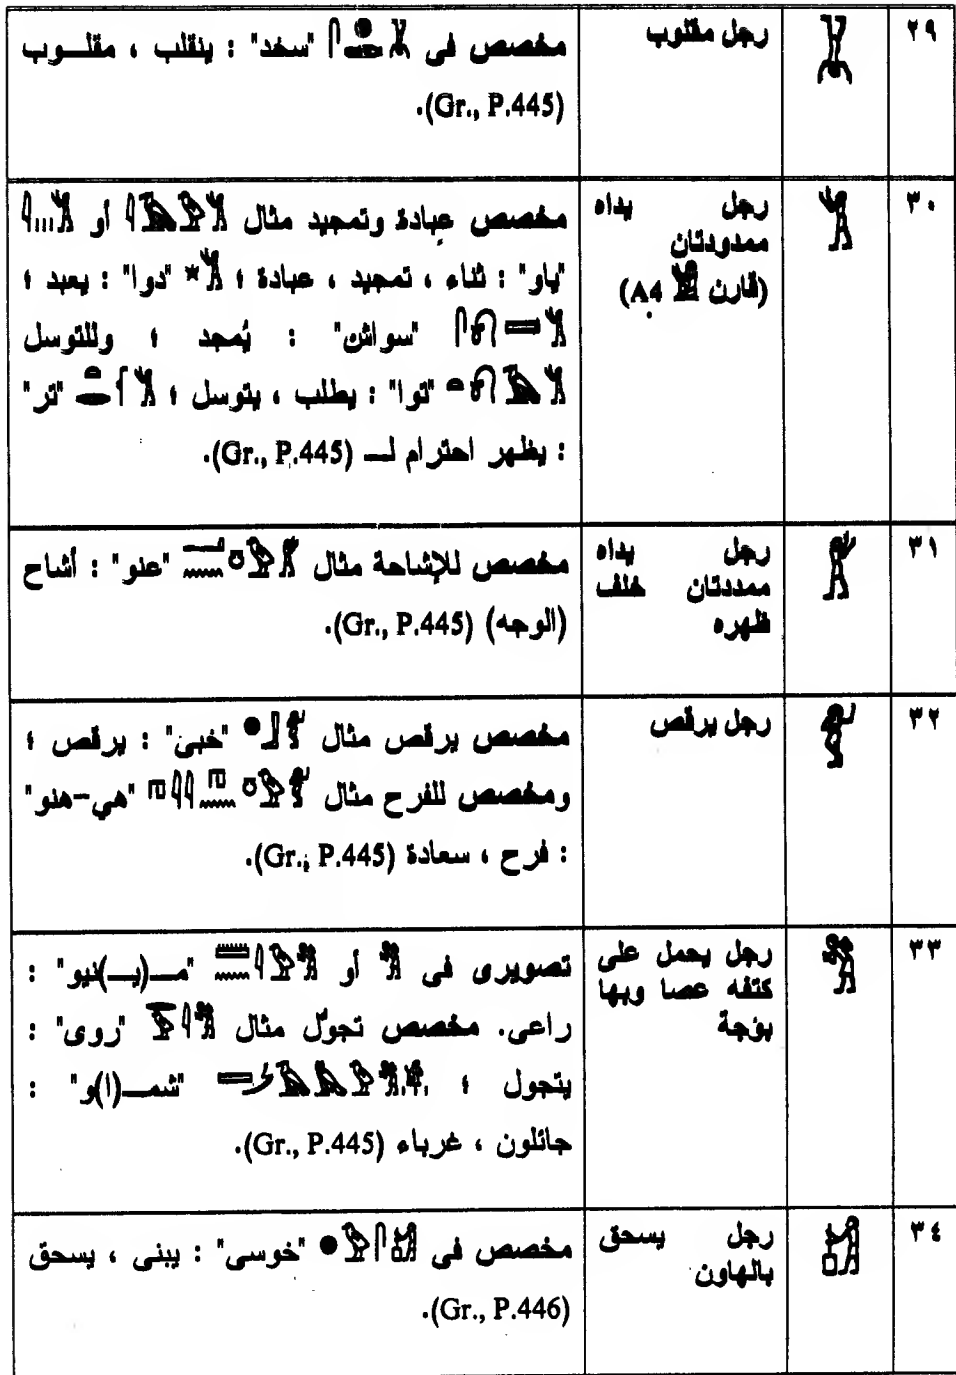 ٢٩
رجل مقلوب
مخصص فى "سخد" : ينقلب ، مقلـــوب
(Gr., P.445).
٣٠
رجل يداه
ممدودتان
(قارن A4)
مخصص عبادة وتمجيد مثال أو
"ياو" : ثناء ، تمجيد ، عبادة ؛ "دوا" : يعبد ؛
"سواش" : يُمجد ؛ وللتوسل
"توا" : يطلب ، يتوسل ؛ "تر"
: يظهر احترام لـــ (Gr., P.445).
٣١
رجل يداه
ممددتان خلف
ظهره
مخصص للإشاحة مثال "عنو" : أشاح
(الوجه) (Gr., P.445).
٣٢
رجل يرقص
مخصص يرقص مثال "خبى" : يرقص ؛
ومخصص للفرح مثال "هي-هنو"
: فرح ، سعادة (Gr., P.445).
٣٣
رجل يحمل على
كتفه عصا وبها
بؤجة
تصويرى فى أو "مـــ(يـــ)نيو" :
راعى. مخصص تجوّل مثال "روى" :
يتجول ؛ "شمـــ(ا)و" :
جائلون ، غرباء (Gr., P.445).
٣٤
رجل يسحق
بالهاون
مخصص فى "خوسى" : يبنى ، يسحق
(Gr., P.446).